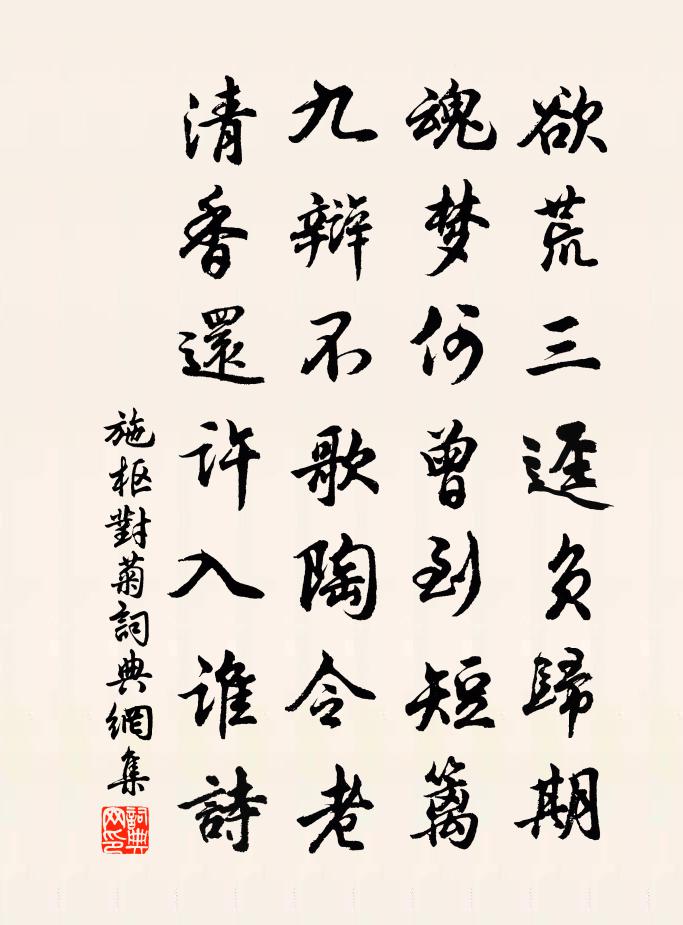 欲荒三逕负歸期
魂梦何曾到短篱
九辯不歌陶令老
清香還许入谁詩
施枢對菊詞典網集
詞典网印